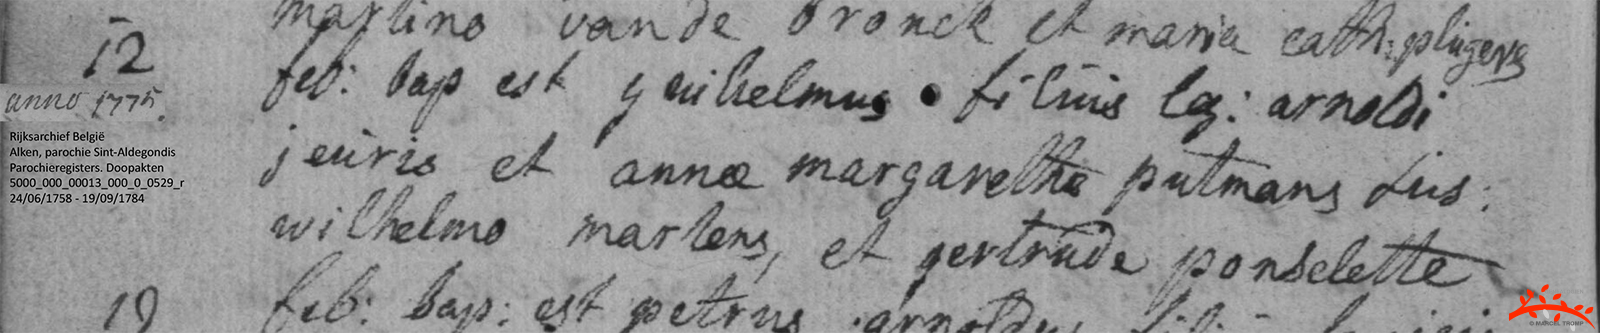 martino vande bronck et maria cath: plugers
12 feb: bap est guilhelmus filius leg: arnoldi
anno 1775.
jeuris et annæ margarethe putmans sus:
wilhelmo martens, et gertrude ponselette
19 feb: bap: est petrus arnoldus
Rijksarchief België
Alken, parochie Sint-Aldegondis
Parochieregisters. Doopakten
5000_000_00013_000_0_0529_r
24/06/1758 - 19/09/1784
© MARCEL TROMP